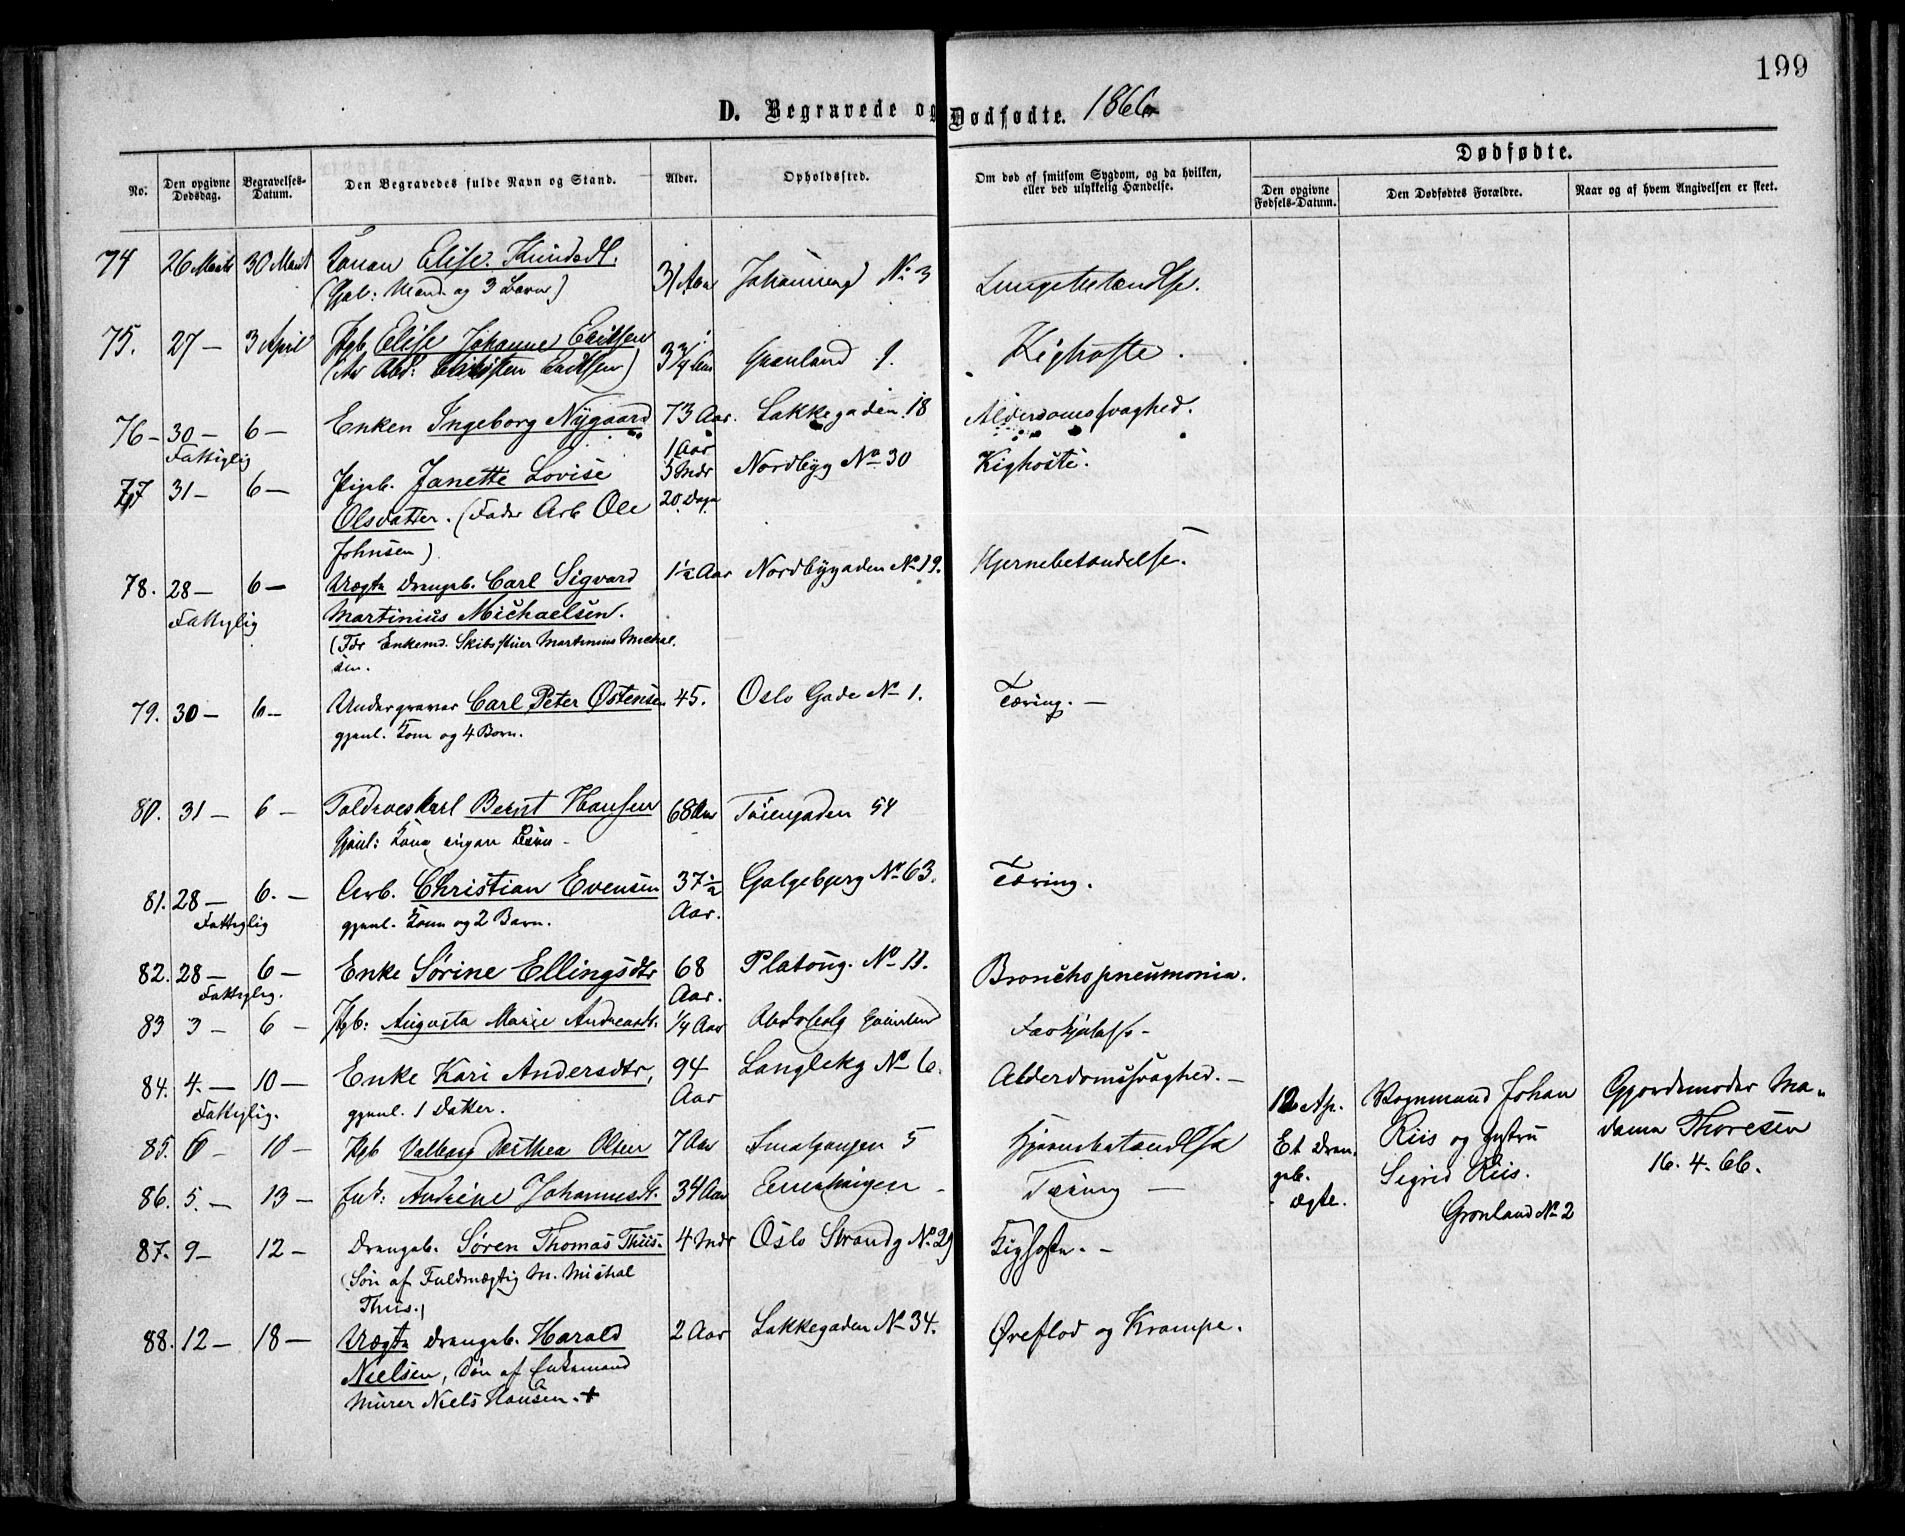 199
D. Begravede og Dødfødte. 1866
Dødfødte.
No.
Den opgivne Dødsdag.
Begravelses-Datum.
Den Begravedes fulde Navn og Stand.
Alder.
Opholdssted.
Om død af smitsom Sygdom, og da hvilken, eller ved ulykkelig Hændelse.
Den opgivne Fødsels-Datum.
Den Dødfødtes Forældre.
Naar og af hvem Angivelsen er skeet.
74 26 Marts 30 Marts Konen Elise Knudsdt. 31 Aar No 3 Lungebetændelse.
(Gjal: Mand og 3 Børn)
75. 27 — 3 April Pgb Elise Johanne Eriksen 3 3/4 Aar Grønland 9. Kighoste.
(Arb: Christen Eriksen)
76 – 30 — 6 — Enken Ingeborg Nygaard 73 Aar. Lakkegaden 18 Alderdomssvaghed.
Fattiglig
77 31 – 6 — Pigeb. Janette Lovise 1 Aar 3 Mdr 20 Dage Nordbyg No 30 Kighoste.
Olsdatter. (Fader Arb Ole
Johnsen)
78. 28 — 6 — Uægte Drengeb. Carl Sigvard 1½ Aar Nordbygaden No 19. Hjernebetændelse.
Fattiglig Martinius Michaelsen.
(Far Enkemd. Skibsstuer Martinius Michael
sen.
79. 30 — 6 — Undergraver Carl Peter Østensen 45. Oslo Gade No 1. Tæring. —
gjenl. Kone og 4 Børn.
80. 31 — 6 — Bernt Hansen 68 Aar Tøiengaden 54
Gjenl: Kone ingen Børn –
81. 28 — 6. — Arb. Christian Evensen 37½ Aar. Galgebjerg No 63. Tæring.
Fattiglig gjenl. Kone og 2 Børn.
82. 28 — 6 — Enke Sørine Ellingsdtr 68 Aar. Platoug. No 11. Bronchopneumonia.
Fattiglig.
83 3 — 6 — Pgb: Augusta Marie Andreasdt. ¼ Aar
84. 4. — 10 — Enke Kari Andersdtr, 94 Aar Langlekg No 6. Alderdomssvaghed. —
Fattiglig. gjenl. 1 Datter.
85. 6 — 10 — Pgb Valborg Dorthea Olsen 7 Aar Smalgangen 5 Hjernebetændelse
86. 5. — 13 — Enk: Andrine Johannesdt. 34 Aar Enerhaugen — Tæring —
87. 9 — 12 — Drengeb. Søren Thomas Thiis. 4 Mdr Oslo Strandg No 29 Kighoste. –
(Søn af Fuldmægtig M. Michal
Thiis.)
88. 12 — 18 — Uægte Drengeb. Harald 2 Aar Lakkegaden No 34. Øreflod og Krampe.
Nielsen, Søn af Enkemand
Murer Niels Hansen. +
12 Ap. Vognmand Johan Gjordemoder Ma-
Et Dren- Riis og Hustru dame Thoresen
geb. Sigrid Riis. 16. 4. 66.
ægte. Grønland No 2